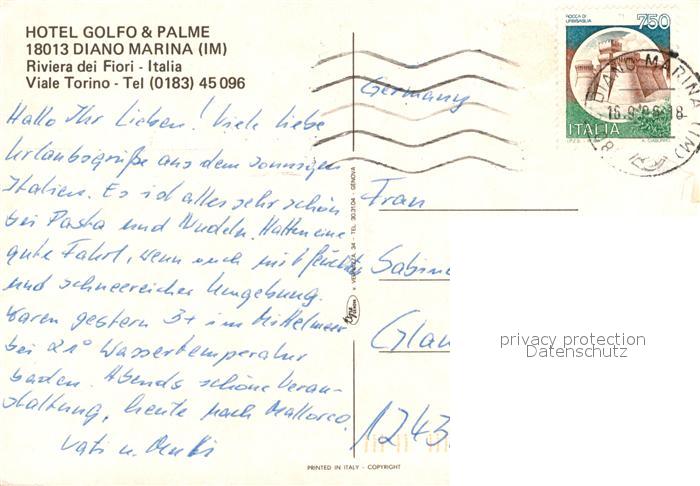 HOTEL GOLFO & PALME
18013 DIANO MARINA (IM)
Riviera dei Fiori - Italia
Viale Torino - Tel (0183) 45 096
Hallo Ihr Lieben! Viele liebe
Urlaubsgrüße aus dem sonnigen
Italien. Es ist alles sehr schön
bei Pasta und Nudeln. Hatten eine
gute Fahrt, wenn auch mit
und schneereicher Umgebung.
Waren gestern 3x im Mittelmeer
bei 21° Wassertemperatur
baden. Abends schöne Veran-
staltung, heute nach Mallorca.
Vati u.
Germany
ROCCA DI
URBISAGLIA
750
ITALIA
DIANO MARINA (IM)
Frau
Sabine
Glau
1243
privacy protection
Datenschutz
34 - TEL. 303104 - GENOVA
PRINTED IN ITALY - COPYRIGHT